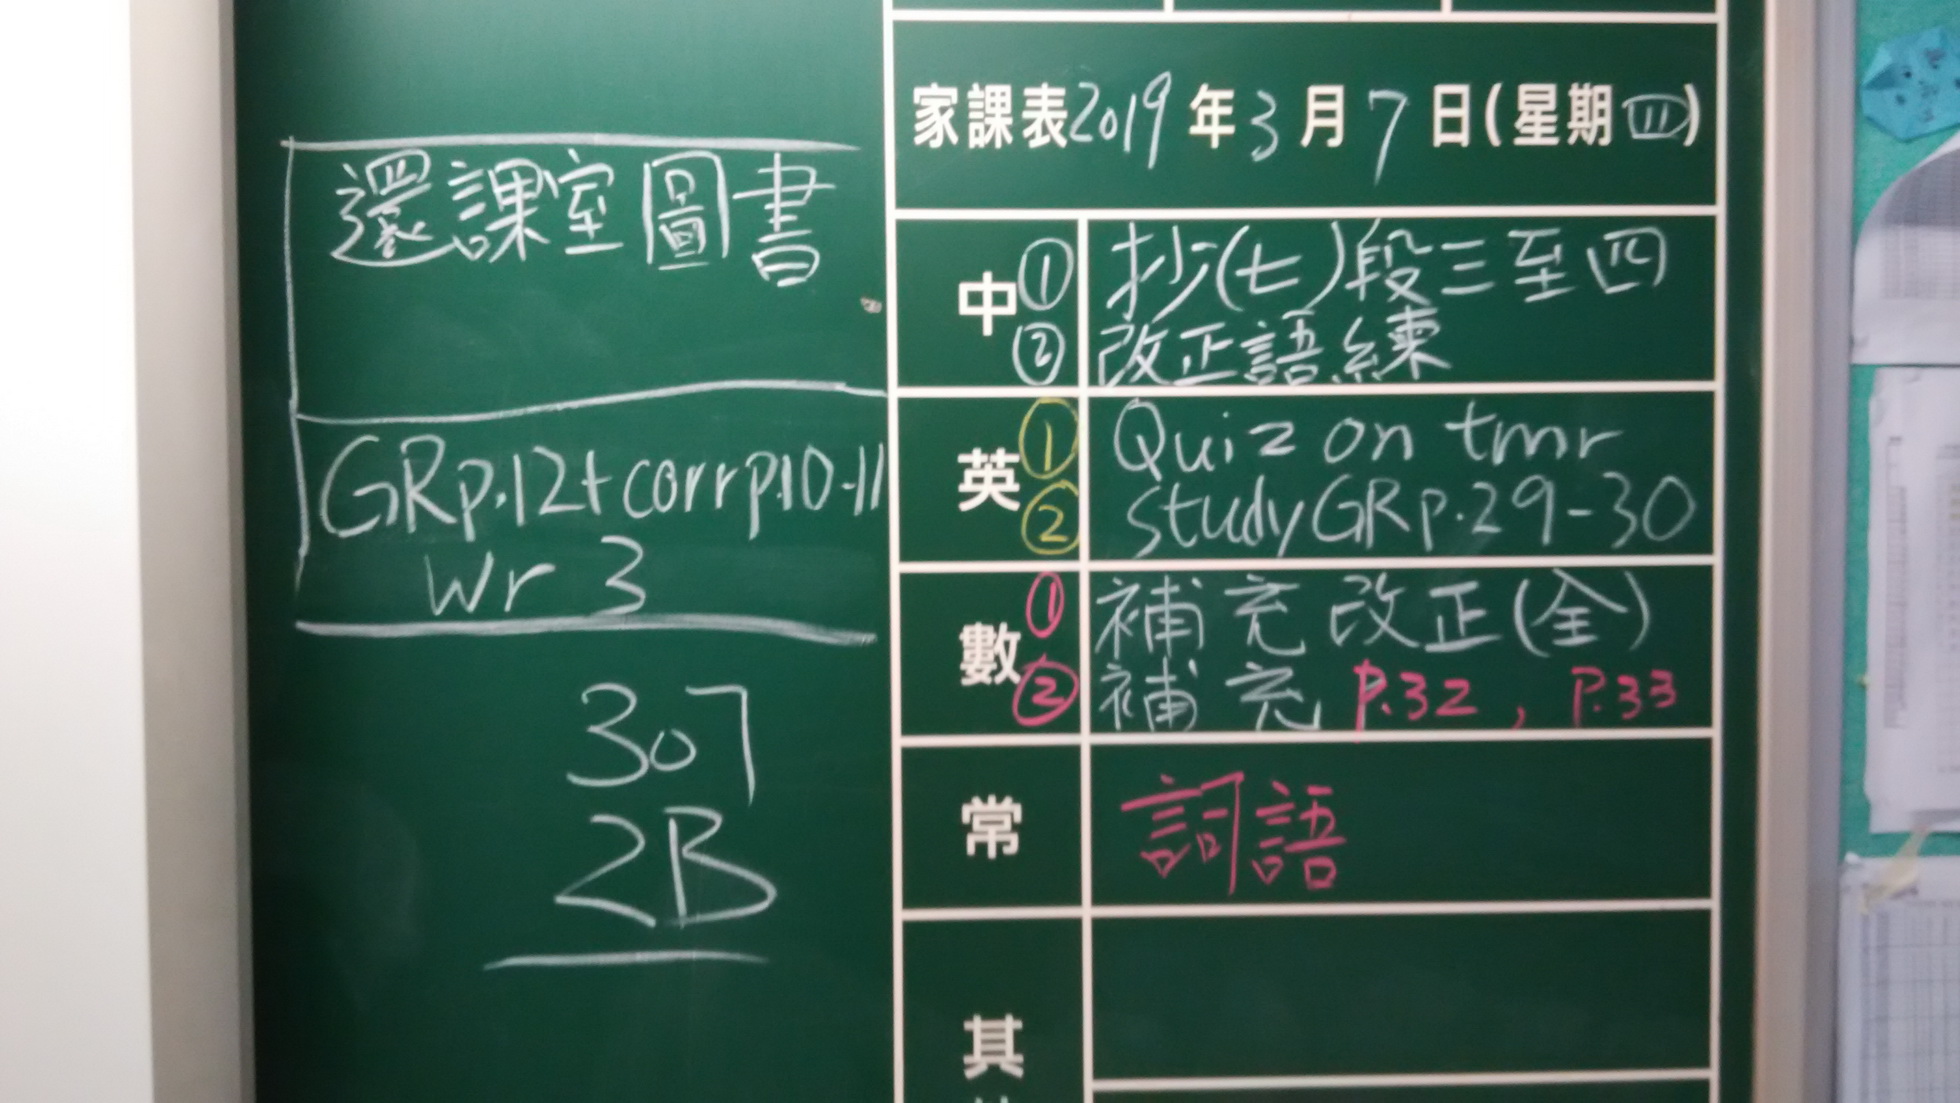 還課室圖書
GRp.12+corrp.10-11
Wr 3
307
2B
家課表2019年3月7日(星期四)
中① 抄(七)段三至四
② 改正語練
英① Quiz on tmr
② study GR p.29-30
數① 補充改正(全)
② 補充 P.32, P.33
常 詞語
其